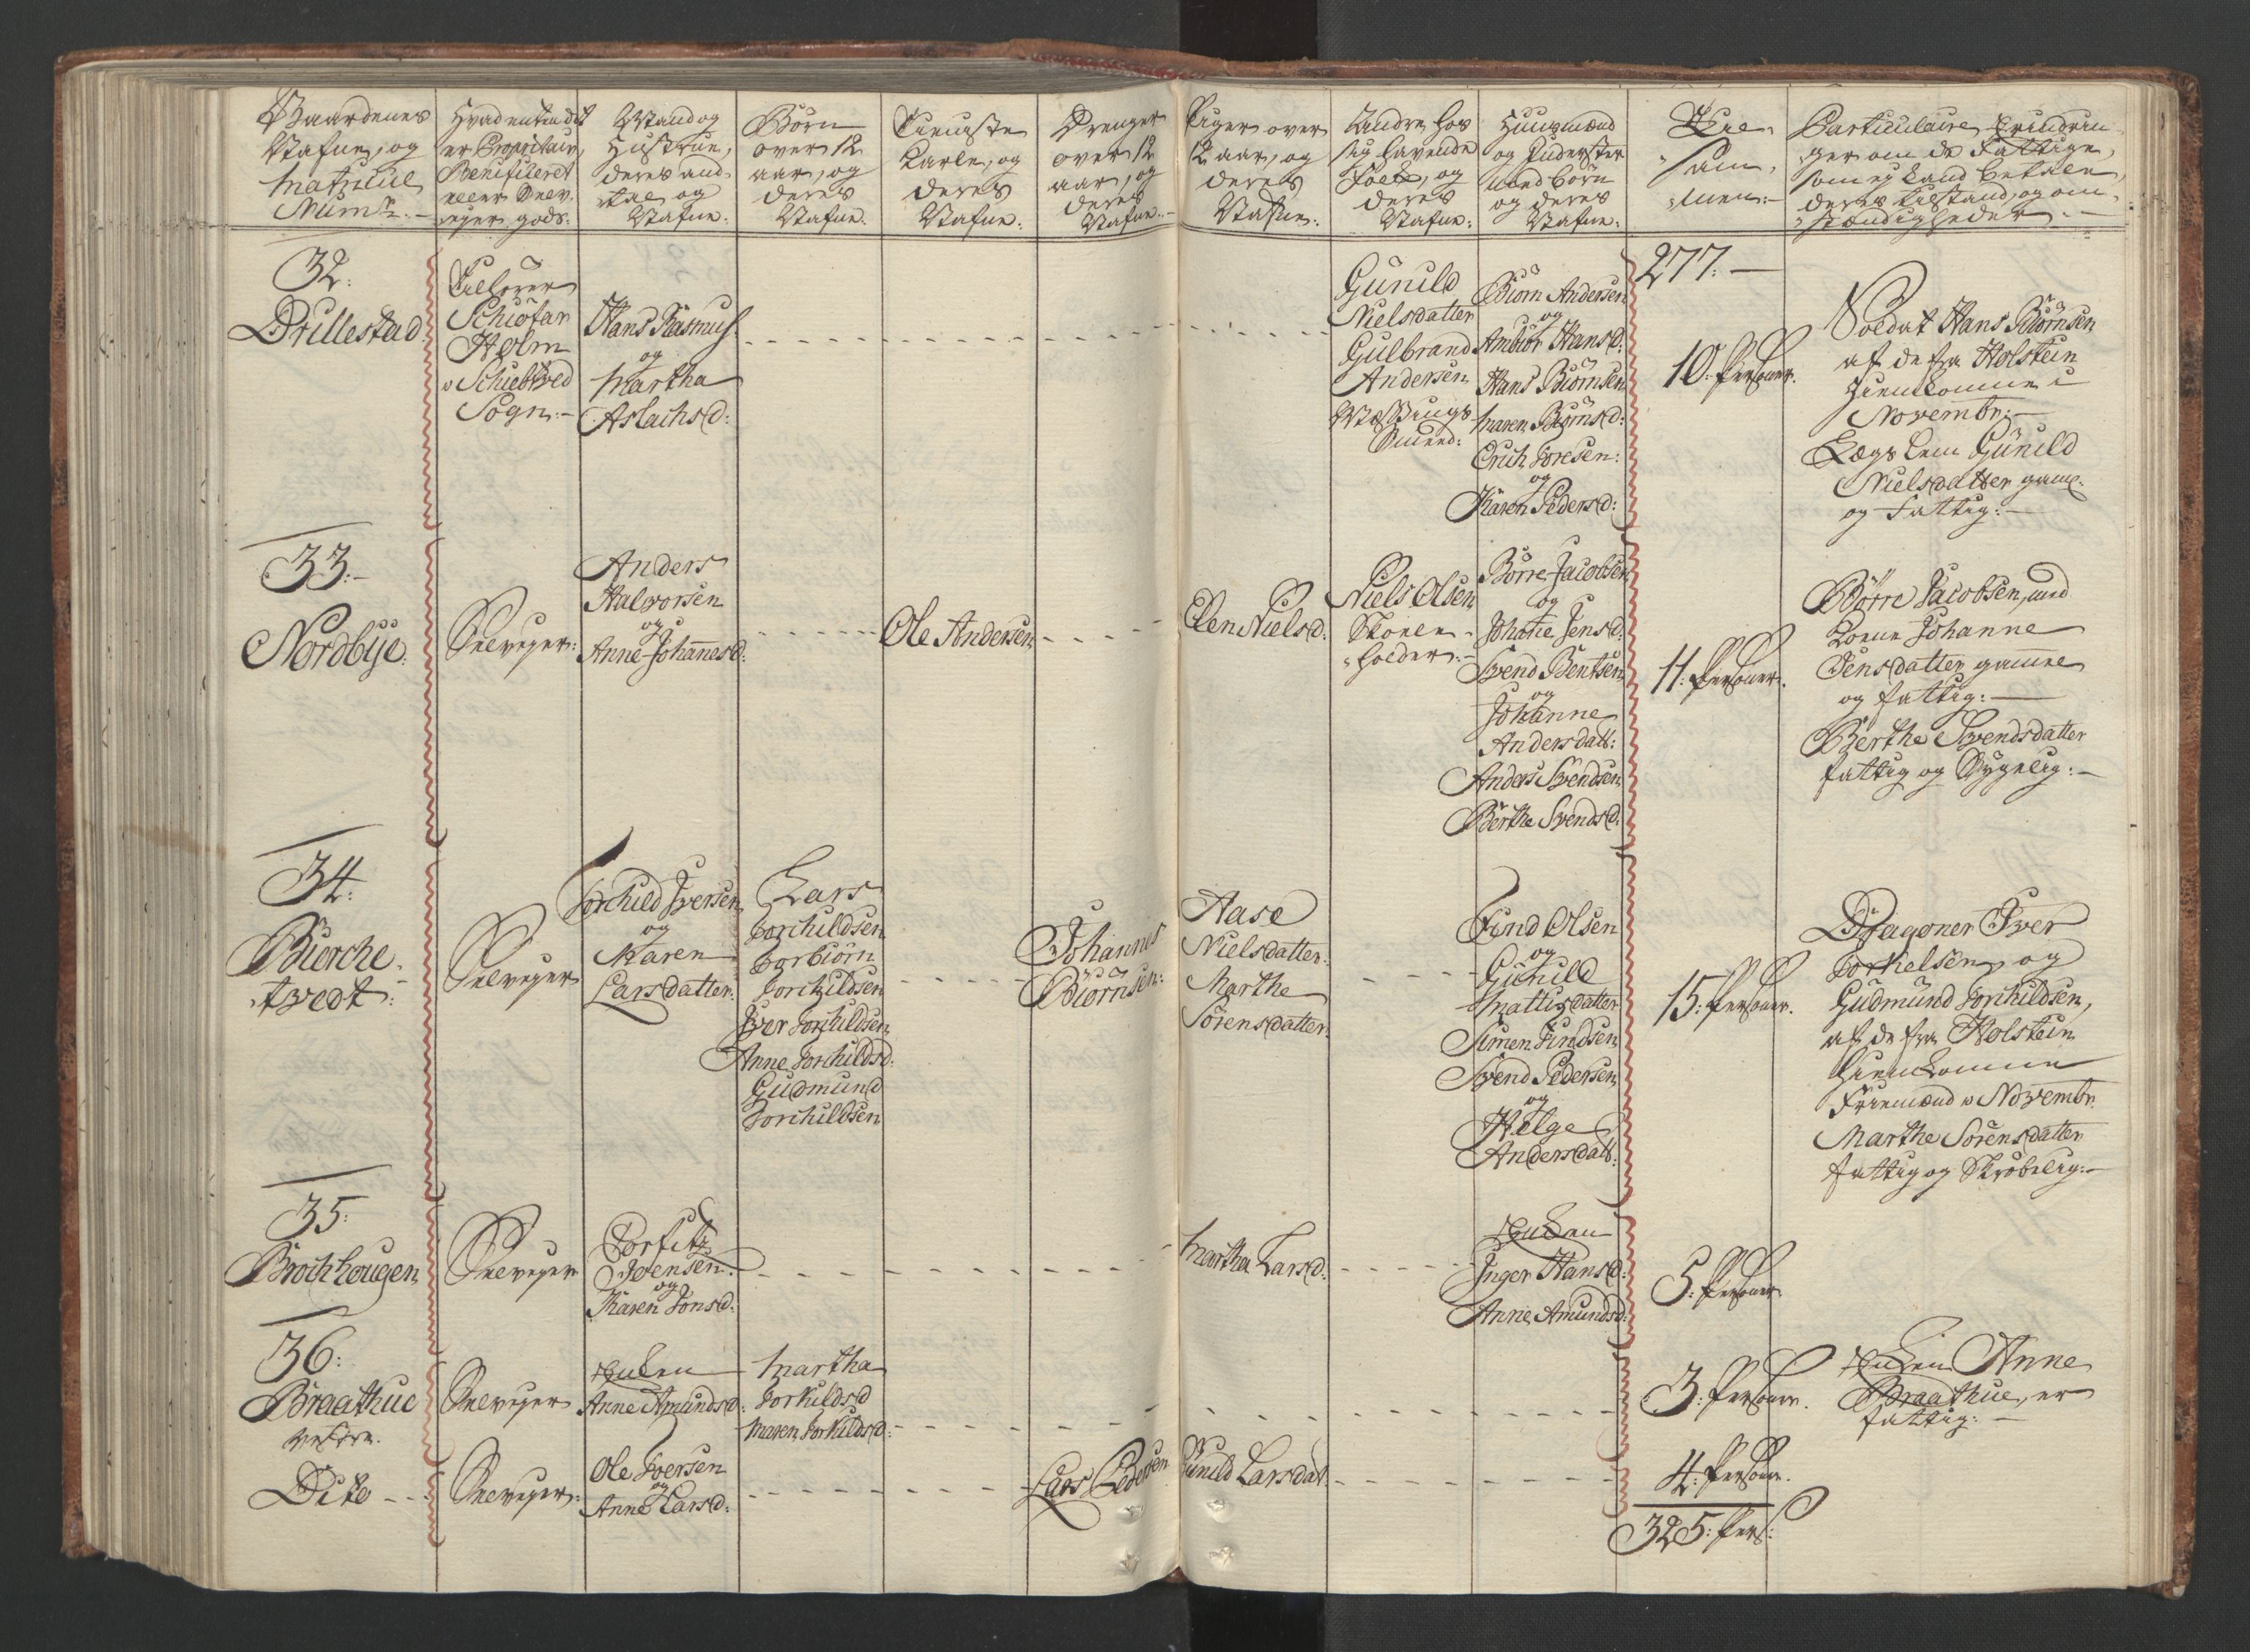 Gaardenes
Nafne, og
Matricul
Num:
Hvad enten det
er Proprietair,
Benificeret
eller Selv-
eyer gods.
Mand og
Hustrue,
deres and-
tal og
Nafne:
Børn
over 12
aar, og
deres
Nafne.
Tieneste
Karle, og
deres
Nafne:
Drenger
over 12
aar, og
deres
Nafne:
Piger over
12 aar, og
deres
Nafne:
Andre hos
sig havende
Folk, og
deres
Nafne:
Huusmænd
og Inderster
med børn
og deres
Nafne:
Sum-
men:
Particulaire Erindrin-
ger om de Fattige,
som ej kand betale,
deres tilstand, og om-
stændigheder:
32:
Drillestad
Holm
i Schiebtved
Sogn:
Hans Rasmus
og
Martha
Aslachsd:
Gunild
Nielsdatter
Gulbrand
Andersen
Biørn Andersen
og
Ambiør Hansd:
Hans Biørnsen
Maren Biørnsd:
Erich Joresen:
og
Karen Pedersd:
277:
10: Personer.
Soldat Hans Biørnsen
af de fra Holstein
hiemkomne i
Novembr:
Lægs Lem Gunild
Nielsdatter gaml:
og Fattig:
33:
Nordbye:
Selveyer:
Anders
Halvorsen
og
Anne Johannesd:
Ole Andersen
Elen Nielsd:
Niels Olsen
Skoele-
holder:
Børre Jacobsen
og
Johanne Jensd:
Svend Bentsen
og
Johanne
Andersdatt:
Anders Svendsen
Berthe Svendsd:
11: Personer.
Børre Jacobsen, med
Kone Johanne
Jensdatter gamle
og fattig:
Berthe Svendsdatter
fattig og Sygelig:
34:
Bierche-
tvedt:
Selveyer
Torchild Iversen
og
Maren
Larsdatter:
Lars
Torchildsen
Torbiørn
Torchildsen
Iver Torchildsen
Anne Torchildsd:
Gudmund
Torchildsen
Johannes
Biørnsen:
Aase
Nielsdatter:
Marthe
Sørensdatter:
Find Olsen
og
Gunild
Mattisdatter
Simen Findsen
Svend Pedersen
og
Helge
Andersdatt:
15: Personer.
Dragoner Iver
Torkelsen, og
Gudmund Torchildsen,
af de fra Holstein
hiemkomne
Friemænd i Novembr:
Marthe Sørensdatter
fattig og Skrøbelig:
35:
Brochhougen
Selveyer
Joensen
og
Karen Jonsd:
Martha Larsd:
Enken
Inger Hansd:
Anne Amundsd:
5: Personer
36:
Braathue
Selveyer
Enken
Anne Amundsd:
Martha
Torkildsd
Maren Torkildsd:
3: Personer.
Enken Anne
Braathue, er
fattig:
Dito
Selveyer:
Ole Iversen
og
Anne Larsd:
Lars Pedersen
Gunild Larsdat:
4: Personer.
325: Pers: